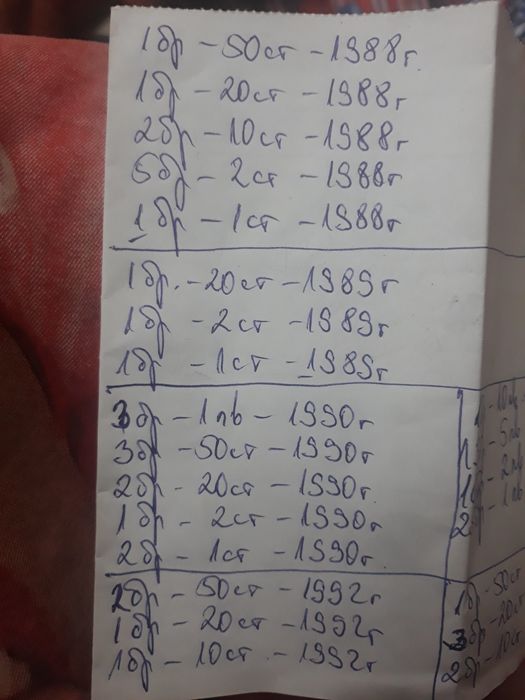 1бр - 50ст - 1988г.
1бр - 20ст - 1988г
2бр - 10ст - 1988г
5бр - 2ст - 1988г
1бр - 1ст - 1988г
1бр. - 20ст - 1989г
1бр - 2ст - 1989г
1бр - 1ст - 1989г
3бр - 1лв - 1990г
3бр - 50ст - 1990г
2бр - 20ст - 1990г.
1бр - 2ст - 1990г
2бр - 1ст - 1990г
2бр - 50ст - 1992г
1бр - 20ст - 1992г
1бр - 10ст - 1992г
- 10лв
- 5лв
1бр - 2лв
2бр - 1лв
1бр - 50ст
3бр - 20ст
2бр - 10ст